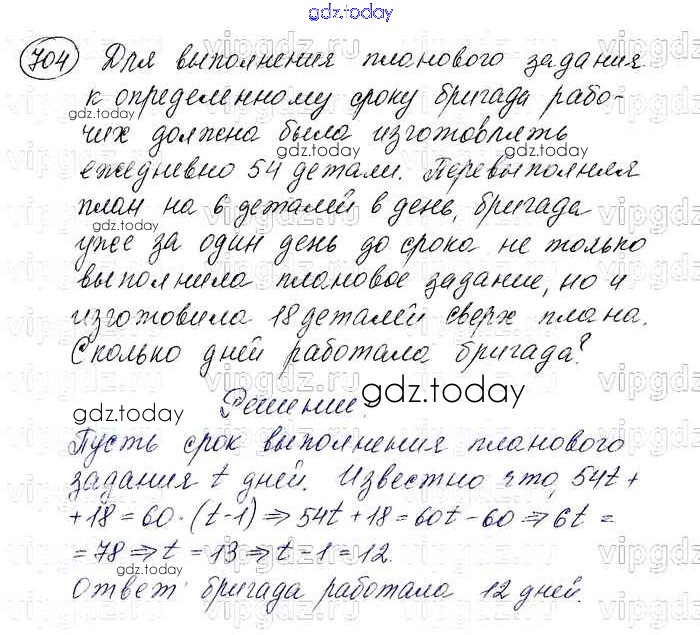 gdz.today
704 Для выполнения планового задания
к определенному сроку бригада рабо-
чих должна была изготовлять
gdz.today gdz.today
ежедневно 54 детали. Перевыполняя
план на 6 деталей в день, бригада
gdz.today gdz.today
уже за один день до срока не только
выполнила плановое задание, но и
изготовила 18 деталей сверх плана.
Сколько дней работала бригада?
gdz.today
Решение.
gdz.today
Пусть срок выполнения планового
задания t дней. Известно что, 54t +
+ 18 = 60 · (t-1) ⇒ 54t + 18 = 60t - 60 ⇒ 6t =
= 78 ⇒ t = 13 ⇒ t - 1 = 12.
gdz.today
Ответ: бригада работала 12 дней.